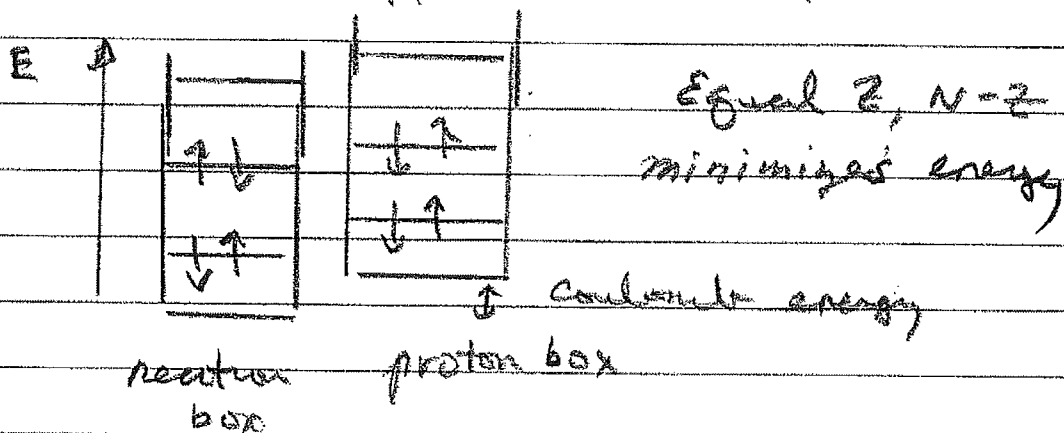 E
Equal Z, N-Z
minimizes energy
Coulomb energy
neutron proton box
box